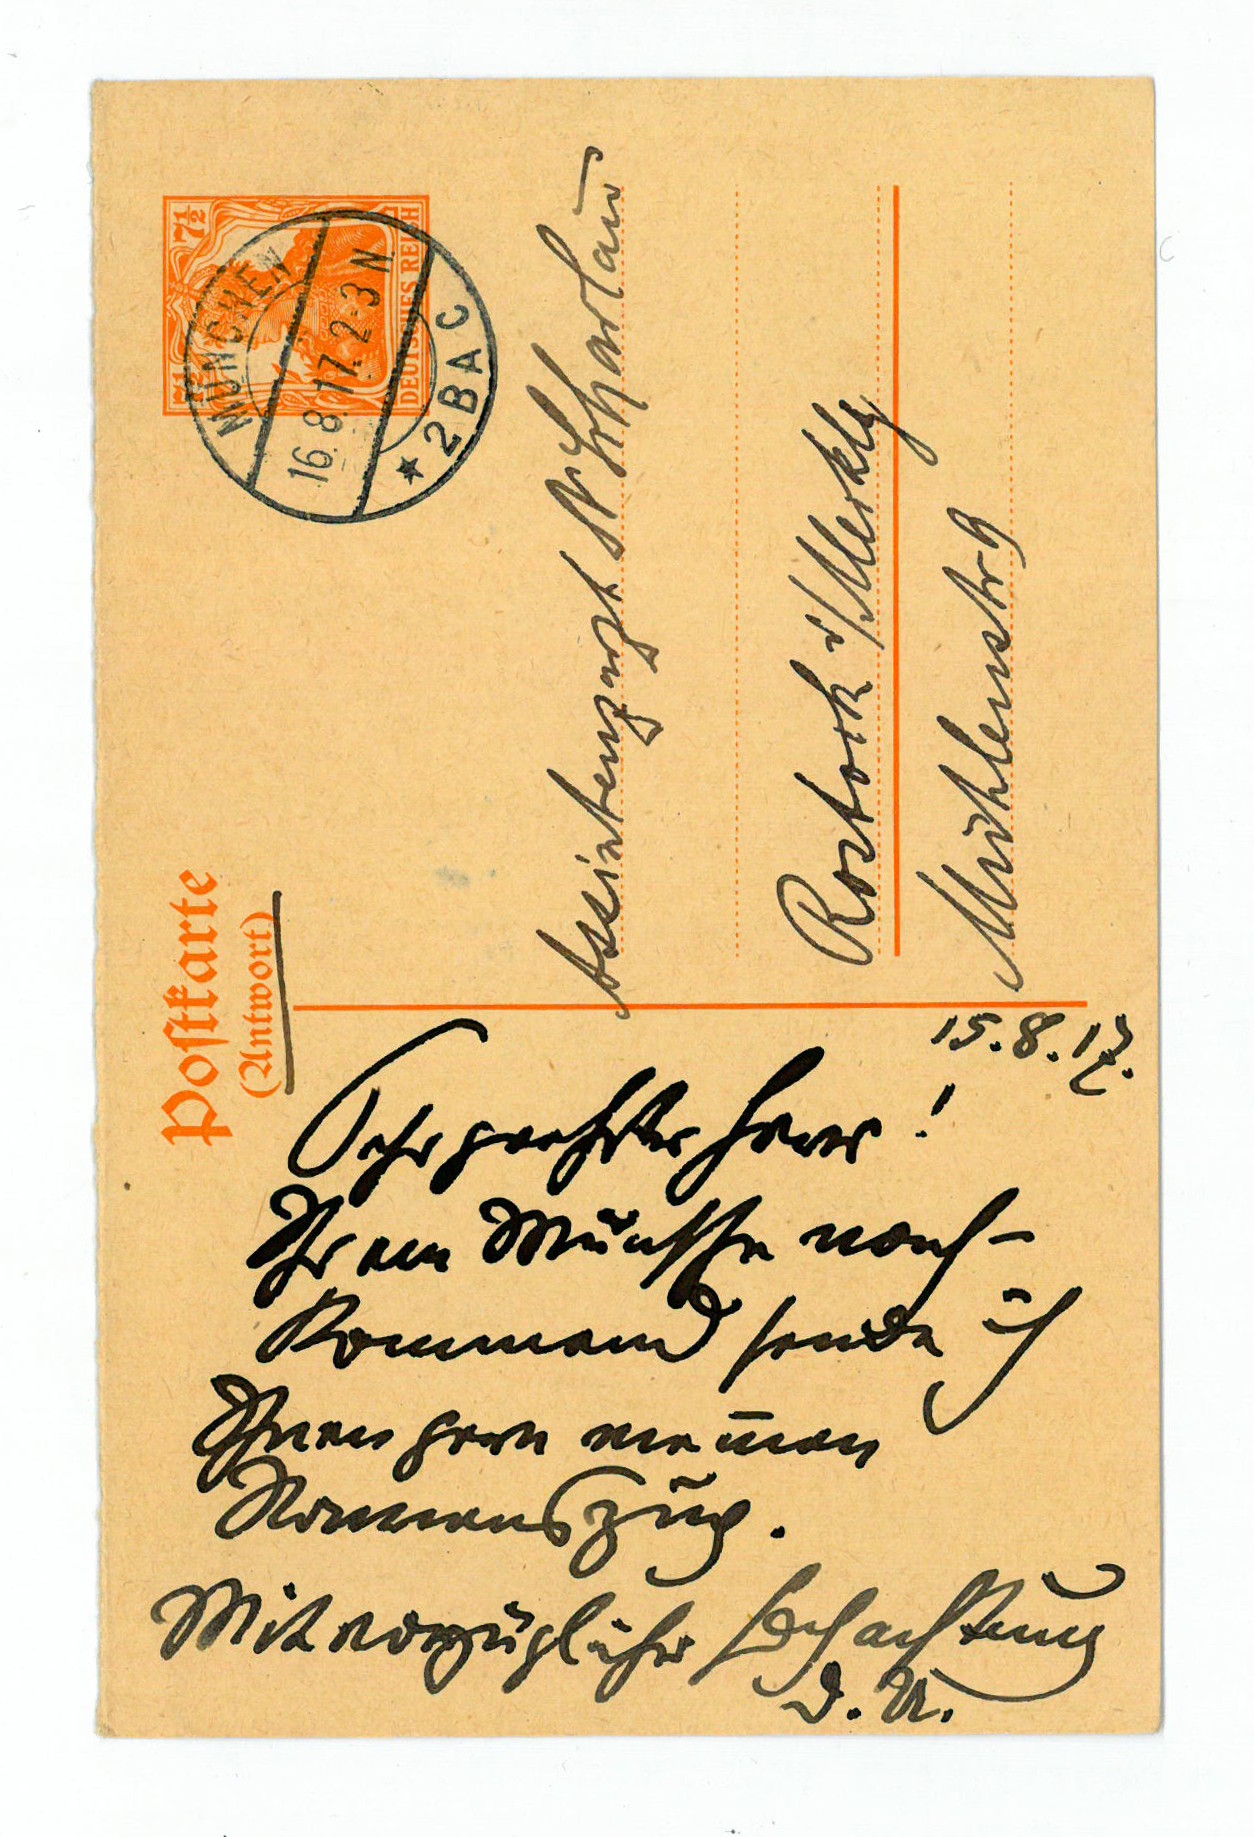 Postkarte
(Antwort)
7½
7½
DEUTSCHES REICH
MÜNCHEN
16.8.17. 2-3 N.
* 2 B A C
Assistenzarzt Dr Scharlau
Rostock i/Meckbg
Mühlenstr 9
15.8.17.
Sehr geehrter Herr!
Ihrem Wunsche nach-
kommend sende ich
Ihnen gern meinen
Namenszug.
Mit vorzüglicher Hochachtung
D. U.